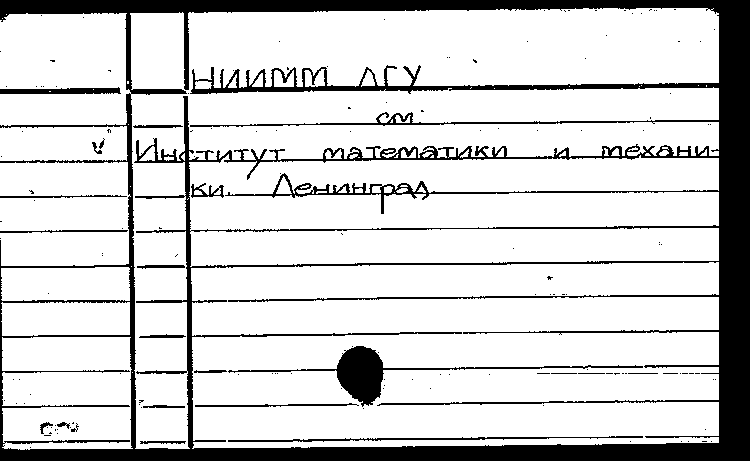 НИИММ ЛГУ
см.
v Институт математики и механи-
ки. Ленинград.